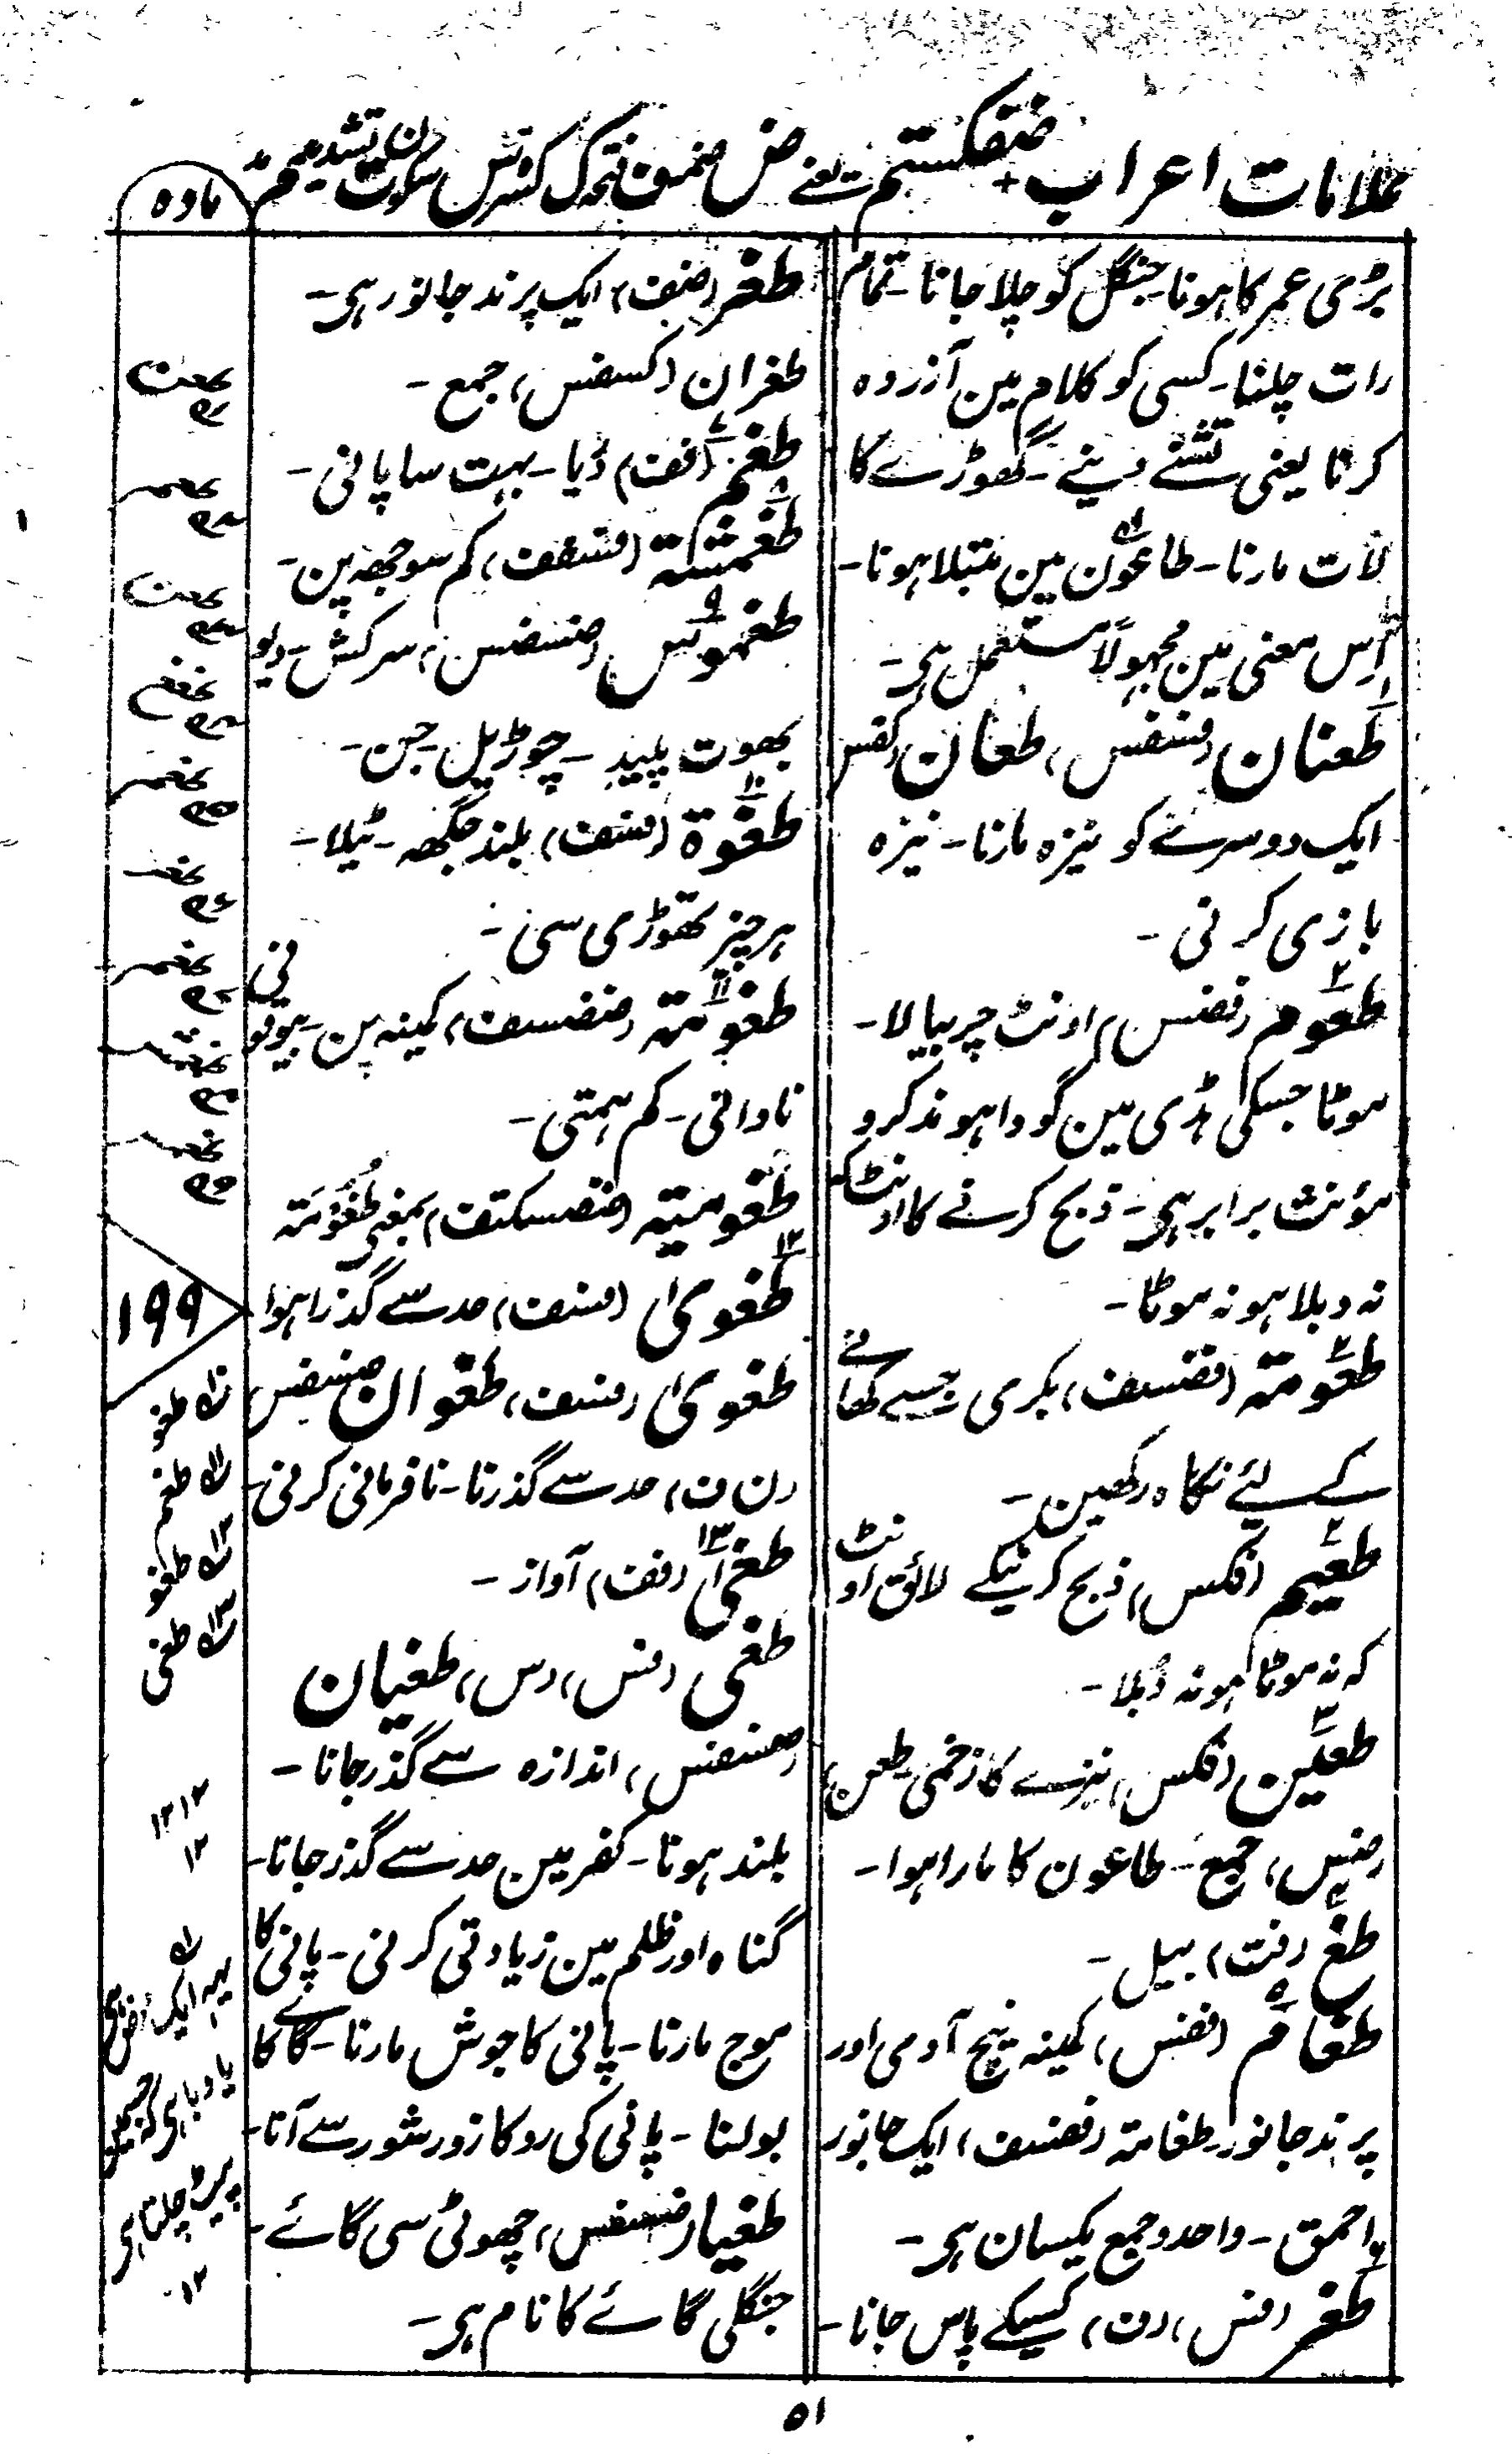 علامات اعراب + ضفکستم یعنے ض ضمه ف فتحه ک کسره س سکون ت تشدید م
ماده
بڑی عمر کا ہونا۔ جنگل کو چلا جانا۔ تمام
رات چلنا۔ کسی کو کلام مین آزرده
کرنا یعنی تشنے دینے۔ گھوڑے کا
لات مارنا۔ طاعون مین مبتلا ہونا۔
اِس معنی مین مجہولاً مستعمل ہی۔
طعنان (فسفس) طعان (کفس
ایک دوسرے کو نیزه مارنا۔ نیزه
بازی کرنی۔
طعوم (فضس) اونٹ چربیالا۔
موٹا جسکی ہڈی مین گودا ہو مذکر و
مؤنث برابر ہی۔ ذبح کرنے کا اونٹ کہ
نہ دبلا ہو نہ موٹا۔
طعومتہ (فضسف) بکری جسے کھانے
کے لیئے نگاه رکھین۔
طعیم (فکس) ذبح کرنیکے لائق اونٹ
کہ نہ موٹا ہو نہ دُبلا۔
طعین (فکس) نیزے کا زخمی۔ طعن
(ضس) جمع۔ طاعون کا مارا ہوا۔
طغ (فت) بیل۔
طغام (ففس) کمینہ نیچ آدمی اور
پرند جانور۔ طغامتہ (ففسف) ایک جانور
احمق۔ واحد و جمع یکسان ہی۔
طغر (فس) (ن) کسیکے پاس جانا۔
طغر (ضف) ایک پرند جانور ہی۔
طغران (کسفس) جمع۔
طغم (فف) دریا۔ بہت سا پانی۔
طغمشتہ (فسفف) کم سوجھہ پن۔
طغموس (ضسضس) سرکش۔ دیو
بھوت پلید۔ چوڑیل۔ جن۔
طغوة (فسف) بلند جگھہ۔ ٹیلا۔
ہر چیز تھوڑی سی۔
طغومتہ (ضضسف) کمینہ پن۔ بیوقوفی
نادانی۔ کم ہمتی۔
طغومیتہ (ضضسکتف) بمعنی طُغُوْمَتہ
طغوی (فسف) حد سے گذرا ہوا
طغوی (فسف) طغوان (ضسفس
(ن ف) حد سے گذرنا۔ نافرمانی کرنی۔
طغی (فف) آواز۔
طغی (فس) (س) طغیان
(ضسفس) اندازه سے گذر جانا۔
بلند ہونا۔ کفر مین حد سے گذر جانا۔
گناه اور ظلم مین زیادتی کرنی۔ پانی کا
موج مارنا۔ پانی کا جوش مارنا۔ گائے کا
بولنا۔ پانی کی رو کا زور شور سے آنا۔
طغیا (ضسفس) چھوٹی سی گائے۔
جنگلی گائے کا نام ہی۔
۱۹۹
۱۰ طغو
۱۱ طغم
۱۲ طغو
۱۳ طغی
۱۲
۱۲
۵۱